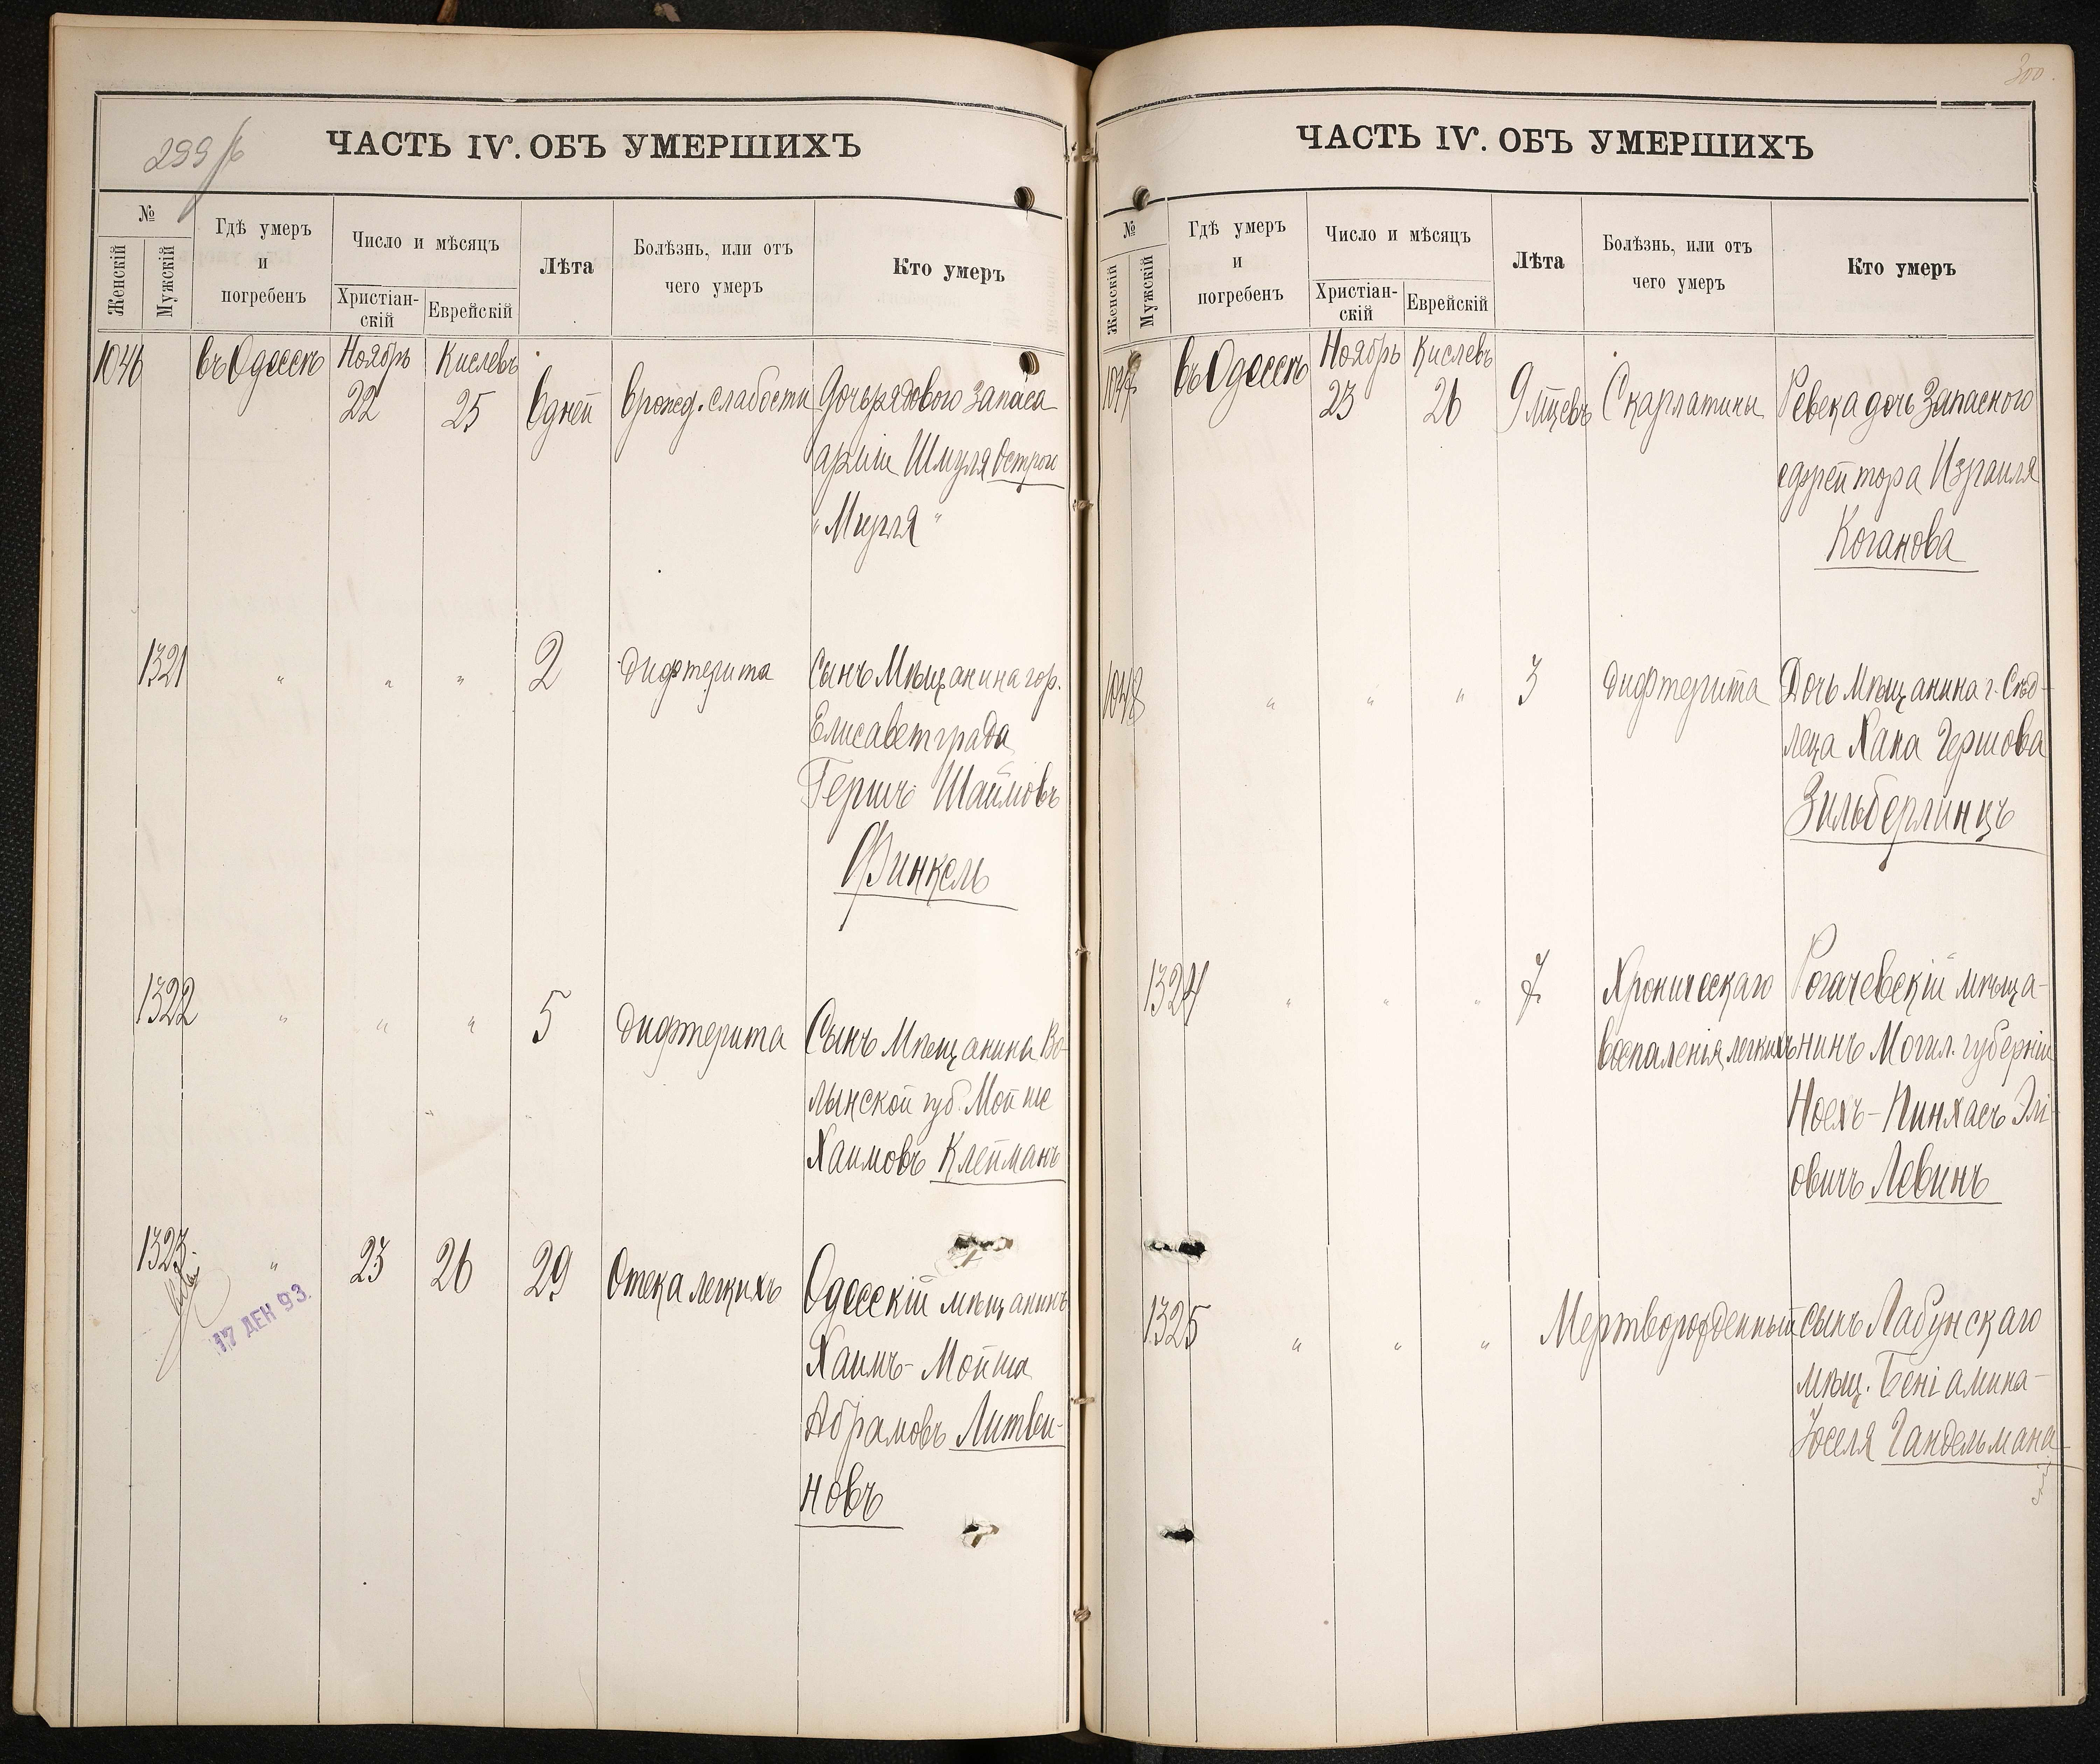 299 об
ЧАСТЬ IV. ОБЪ УМЕРШИХЪ
№
Женскій
Мужскій
Гдѣ умеръ
и
погребенъ
Число и мѣсяцъ
Христіан-
скій
Еврейскій
Лѣта
Болѣзнь, или отъ
чего умеръ
Кто умеръ
1046 въ Одессѣ Ноябрь 22 Кислевъ 25 6 дней врожд. слабости Дочь рядового запаса
арміи Шмуля Остро
"Мирля"
1321 " " " 2 дифтерита Сынъ Мѣщанина гор.
Елисаветграда
Гершъ Шаймовъ
Финкель
1322 " " " 5 дифтерита Сынъ Мѣщанина Во-
лынской губ. Мойше
Хаимовъ Клейманъ
1323 " 23 26 29 Отека легкихъ Одесскій мѣщанинъ
Хаимъ-Мойша
Абрамовъ Литви-
новъ
17 ДЕК 93.
300
ЧАСТЬ IV. ОБЪ УМЕРШИХЪ
№
Женскій
Мужскій
Гдѣ умеръ
и
погребенъ
Число и мѣсяцъ
Христіан-
скій
Еврейскій
Лѣта
Болѣзнь, или отъ
чего умеръ
Кто умеръ
1047 въ Одессѣ Ноябрь 23 Кислевъ 26 9 мцевъ Скарлатины Ревека дочь Запасного
ефрейтора Израиля
Коганова
1048 " " " 3 дифтерита Дочь мѣщанина г. Сѣд-
леца Хана Гершова
Зильберлинцъ
1324 " " " 7 Хроническаго Рогачевскій мѣща-
воспаленія легкихъ нинъ Могил. губерніи
Ноехъ-Пинхасъ Эли-
овичъ Левинъ
1325 " " " Мертворожденный сынъ Лабунскаго
мѣщ. Беніамина-
Іоселя Гандельмана